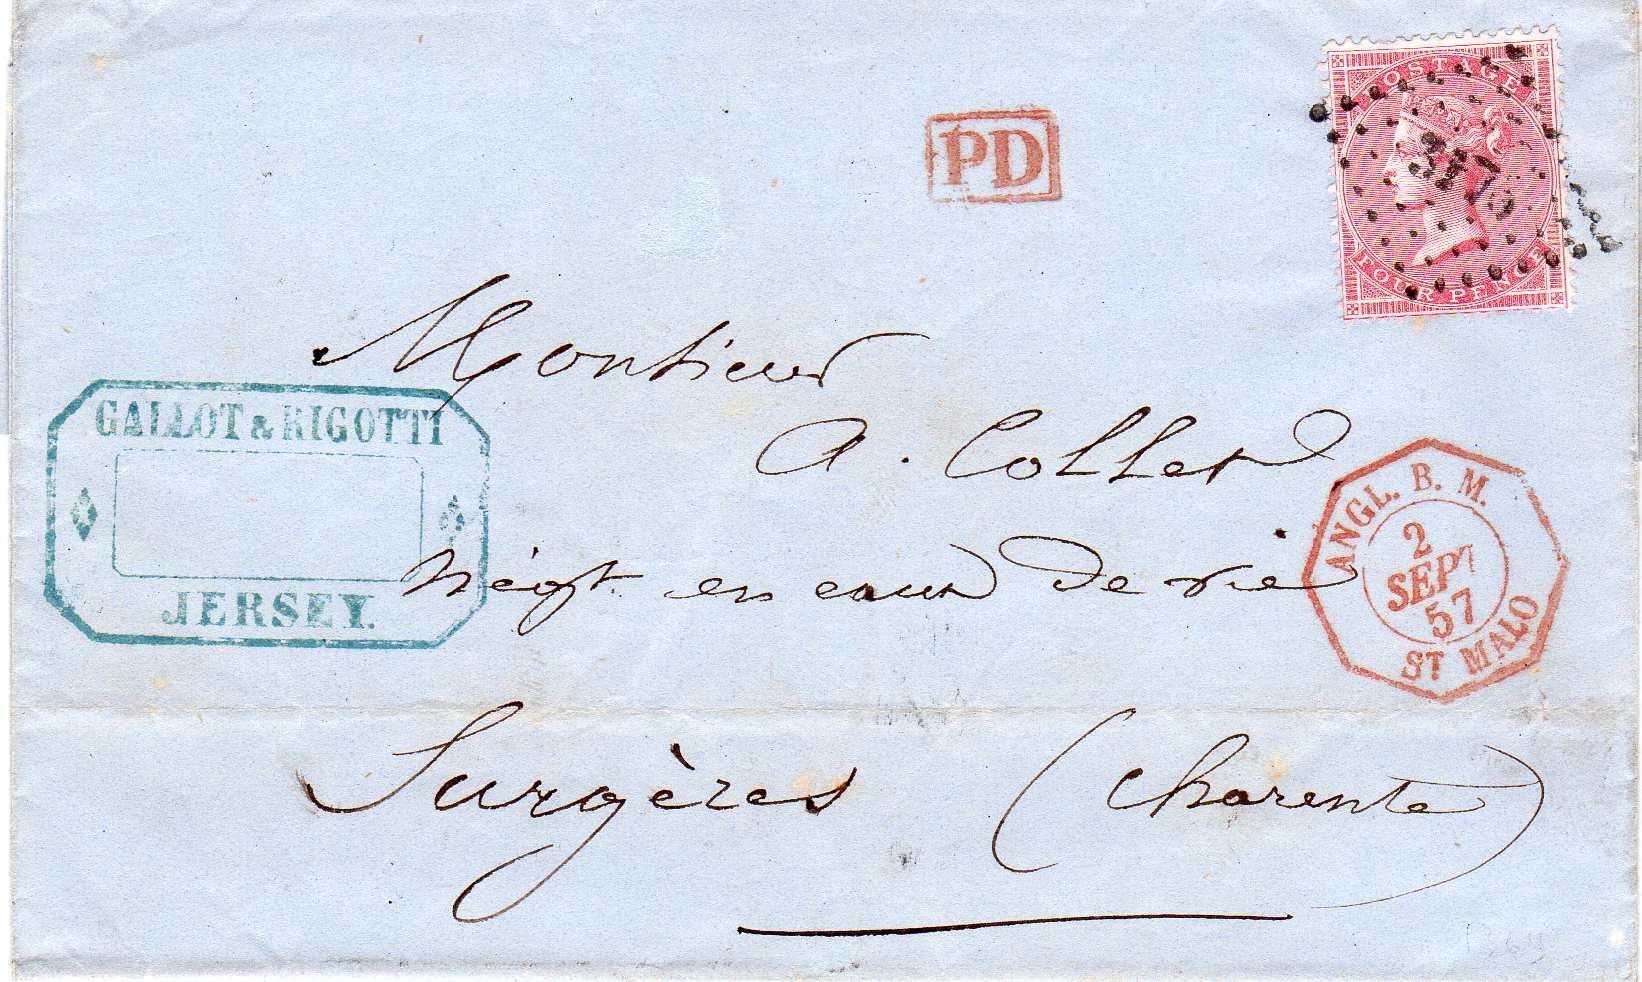 POSTAGE
FOUR PENCE
3176
PD
Monsieur
GALLOT & RIGOTTI
JERSEY.
A. Collet
négt. en eaux de vie
ANGL. B. M.
2
SEPT
57
ST MALO
Surgères (Charente)